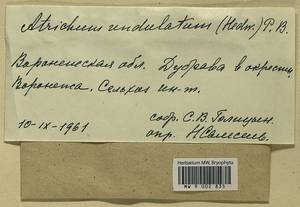 Atrichum undulatum (Hedw.) P. B.
Воронежская обл. Дубрава в окрестн.
Воронежа. Сельхоз ин-т.
10-IX-1961
собр. С. В. Голицин
опр.
Herbarium MW, Bryophyta
MW 9 002 835